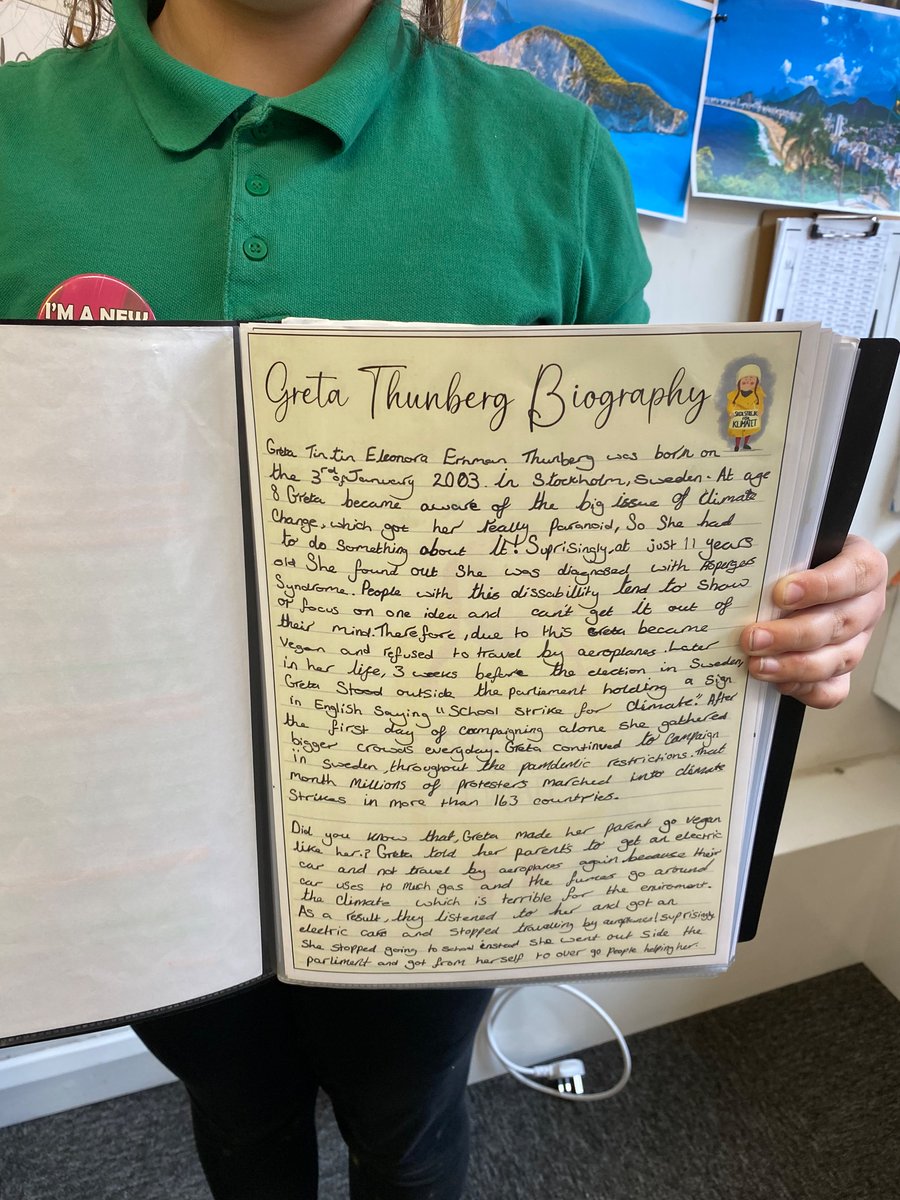 I'M A NEW
Greta Thunberg Biography
SKOLSTREJK
FÖR
KLIMATET
Greta Tintin Eleonora Ernman Thunberg was born on
the 3rd of January 2003 in Stockholm, Sweden. At age
8 Greta became aware of the big issue of climate
change, which got her really paranoid, So She had
to do something about It! Suprisingly, at just 11 years
old She found out She was diagnosed with Aspergers
Syndrome. People with this dissability tend to show
or focus on one idea and can't get it out of
their mind. Therefore, due to this Greta became
vegan and refused to travel by aeroplanes. Later
in her life, 3 weeks before the election in Sweden,
Greta Stood outside the parliament holding a sign
in English saying "School strike for climate". After
the first day of campaigning alone she gathered
bigger crowds everyday. Greta continued to campaign
in Sweden, throughout the pandemic restrictions. That
month Millions of protesters marched into climate
Strikes in more than 163 countries.
Did you know that, Greta made her parent go vegan
like her? Greta told her parents to get an electric
car and not travel by aeroplanes again because their
car uses to much gas and the fumes go around
the climate which is terrible for the enviroment.
As a result, they listened to her and got an
electric care and stopped travelling by aeroplanes! Suprisingly
She stopped going to school instead she went out side the
parliment and got from herself to over 90 people helping her.